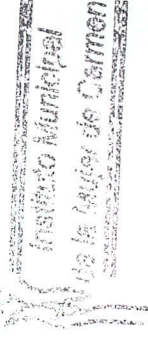 Instituto Municipal
de la Mujer de Carmen